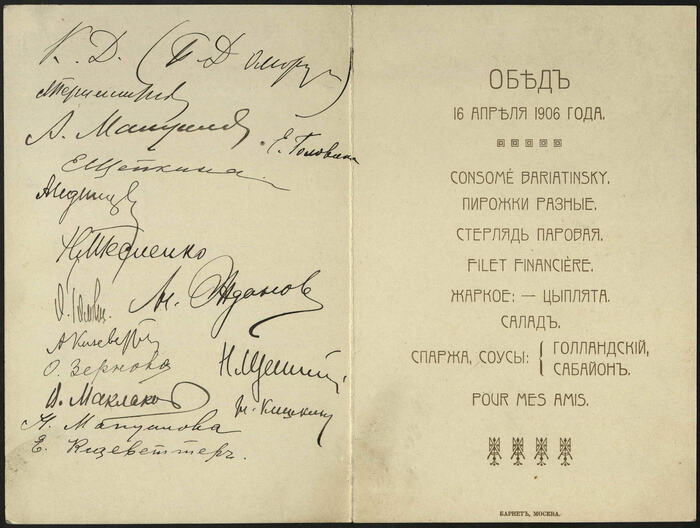 К. Д. (
Е. Головина
Е. Щепкина
Н. Тесленко
Жданов
А. Кизеветтер
О. Зернова
Н. Щепкин
В. Маклаков
Н. Кишкин
Е. Кизеветтеръ.
ОБѢДЪ
16 АПРѢЛЯ 1906 ГОДА.
CONSOMÉ BARIATINSKY.
ПИРОЖКИ РАЗНЫЕ.
СТЕРЛЯДЬ ПАРОВАЯ.
FILET FINANCIÈRE.
ЖАРКОЕ: — ЦЫПЛЯТА.
САЛАДЪ.
СПАРЖА, СОУСЫ: { ГОЛЛАНДСКІЙ,
САБАЙОНЪ.
POUR MES AMIS.
БАРНЕТЪ, МОСКВА.